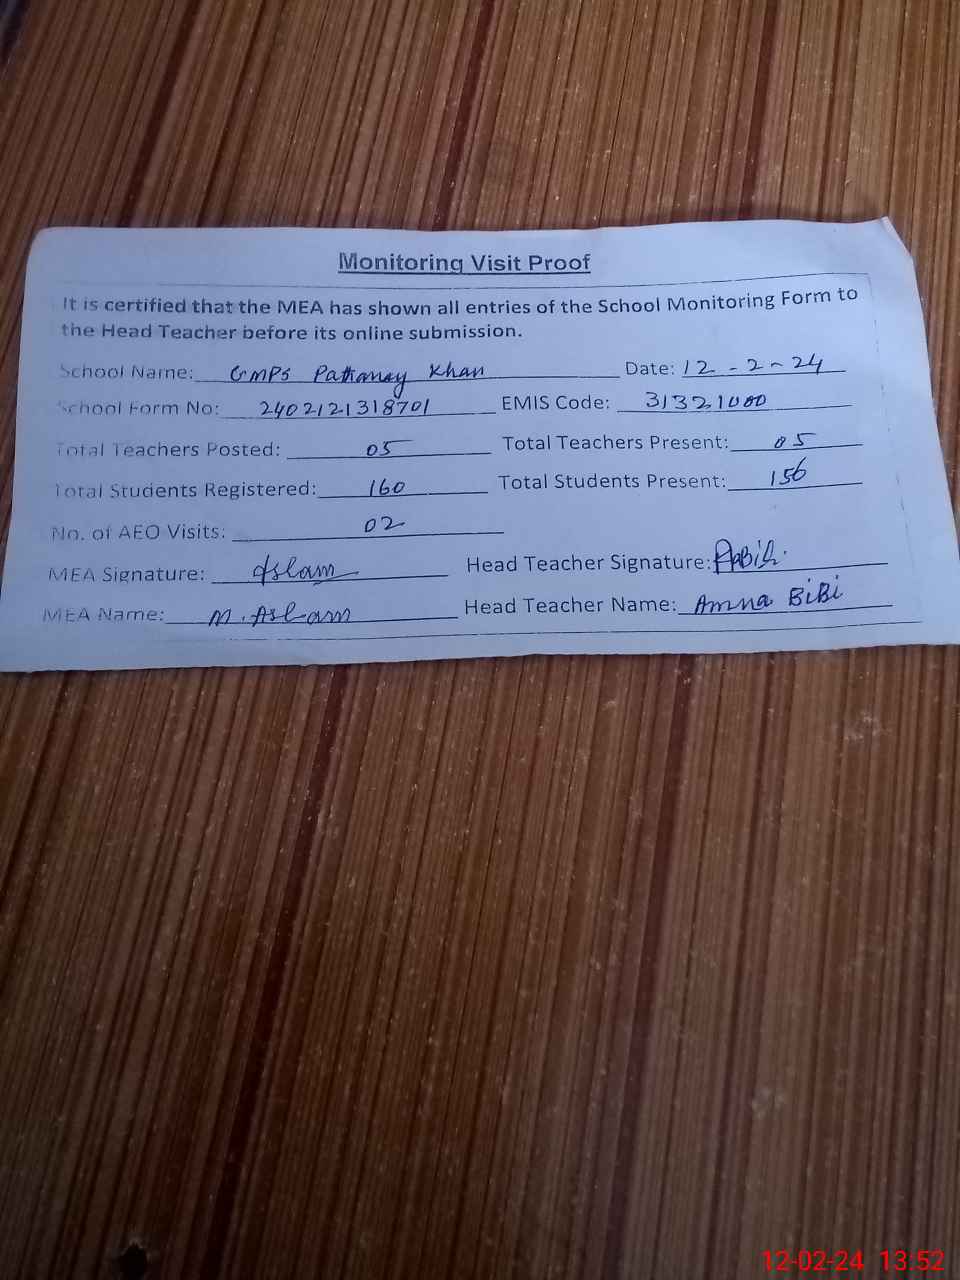 Monitoring Visit Proof
It is certified that the MEA has shown all entries of the School Monitoring Form to
the Head Teacher before its online submission.
School Name: GMPS Pathaney Khan Date: 12-2-24
School Form No: 2402121318701 EMIS Code: 31321000
Total Teachers Posted: 05 Total Teachers Present: 05
Total Students Registered: 160 Total Students Present: 156
No. of AEO Visits: 02
MEA Signature: Aslam Head Teacher Signature:
MEA Name: M. Aslam Head Teacher Name: Amna BiBi
12-02-24 13:52